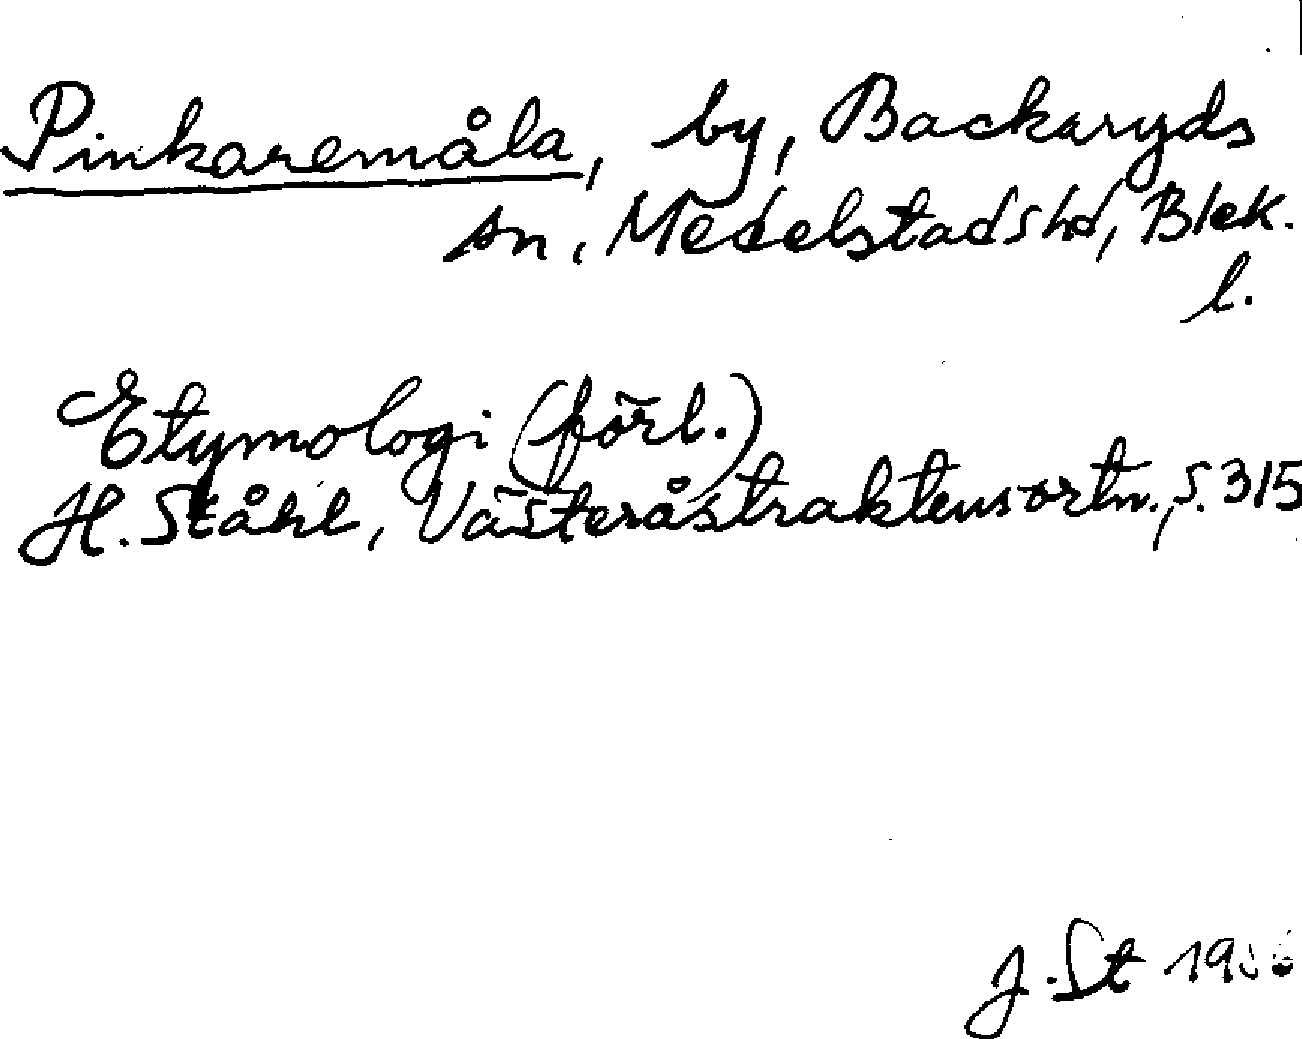 Pinkaremåla, by, Backaryds
sn, Medelstadshd, Blek.
l.
Etymologi (förl.)
H. Ståhl, Västeråstraktens ortn., s. 315
J. St